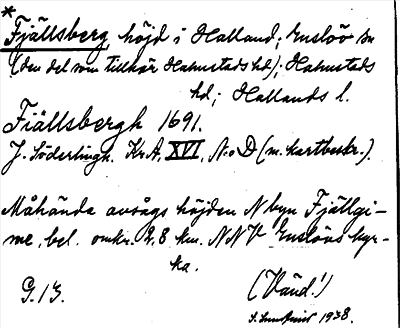 *
Fjällsberg, höjd i Halland; Enslöv sn
(den del som tillhör Halmstads hd); Halmstads
hd; Hallands l.
Fiällsbergh 1691.
J. Söderlingh. KrA, XVI, N:o D (m. kartbeskr.).
Måhända avsågs höjden N byn Fjällgi-
me, bel. omkr. 2,8 km. NNV Enslövs kyr-
ka.
G. 13.
(Vänd!)
1938.